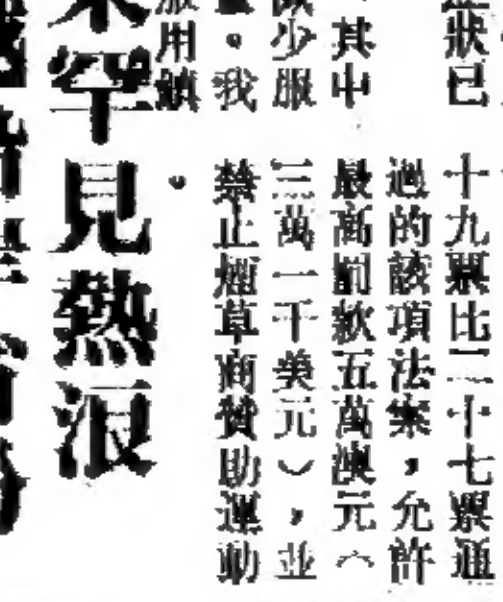 狀已
其中
少服
。我
服用鎮
十九票比二十七票通
過的該項法案,允許
最高罰款五萬澳元(
三萬一千美元),並
禁止煙草商贊助運動
。
罕見熱浪